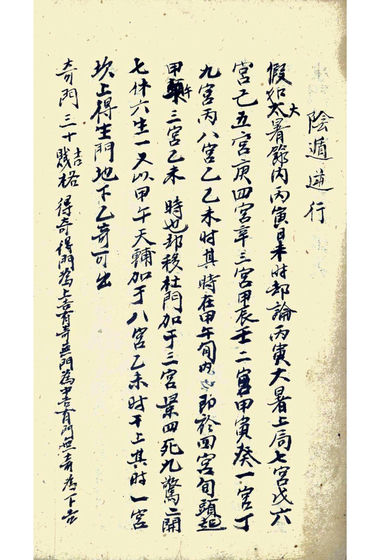 陰遁逆行
假如大暑節內丙寅日未時却論丙寅大暑上局七宮戊六
宮己五宮庚四宮辛三宮甲辰壬二宮甲寅癸一宮丁
九宮丙八宮乙乙未時其時在甲午旬內即於四宮旬頭起
甲午三宮乙未時也却移杜門加于三宮景四死九驚二開
七休六生一又以甲午天輔加于八宮乙未時干上其時一宮
坎上得生門地下乙奇可出
奇門三十吉賤格得奇得門為上吉有奇無門為中吉有門無奇為下吉